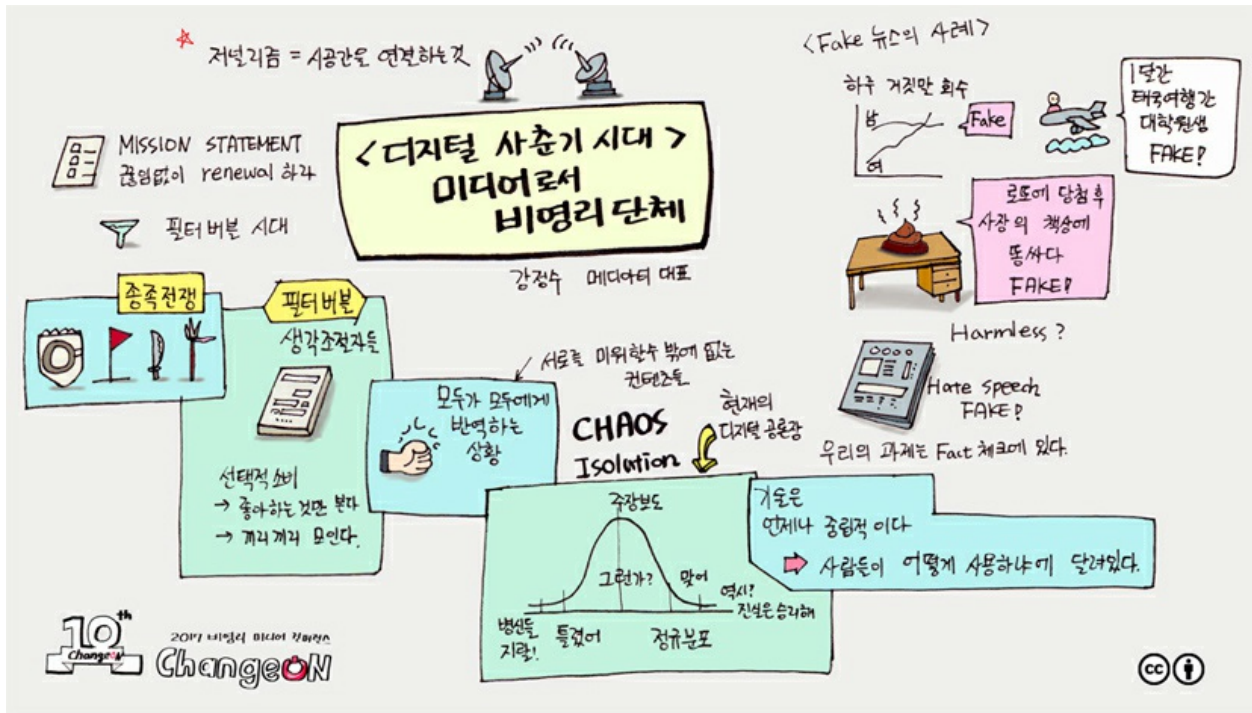 저널리즘 = 시공간을 연결하는것
MISSION STATEMENT
끊임없이 renewal 하라
필터버블 시대
<디지털 사춘기 시대>
미디어로서
비영리 단체
강정수 메디아티 대표
<Fake 뉴스의 사례>
하루 거짓말 회수
남
여
Fake
1달간
태국여행간
대학원생
FAKE!
로또에 당첨 후
사장의 책상에
똥싸다
FAKE!
Harmless?
Hate speech
FAKE!
우리의 과제는 Fact 체크에 있다.
종족전쟁
필터버블
생각조절자들
선택적소비
→ 좋아하는것만 본다
→ 끼리끼리 모인다.
모두가 모두에게
반역하는
상황
서로를 미워할수 밖에 없는
컨텐츠들
CHAOS
Isolution
현재의
디지털 공론장
주장보도
그런가?
맞어
역시!
진실은승리해
병신들
지랄!
틀렸어
정규분포
기술은
언제나 중립적 이다
사람들이 어떻게 사용하냐에 달려있다.
10th
ChangeON
2017 비영리 미디어 컨퍼런스
ChangeON
cc